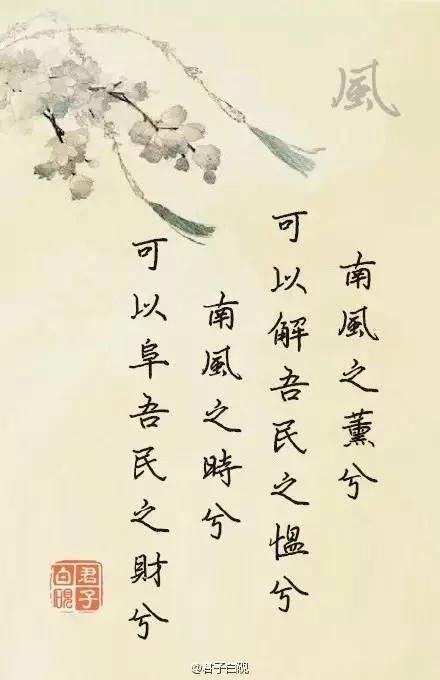 風
南風之薰兮
可以解吾民之慍兮
南風之時兮
可以阜吾民之財兮
君子
白硯
@君子白硯